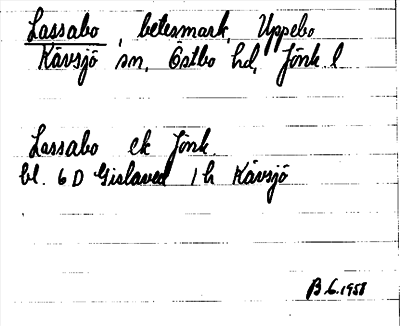 Lassabo, betesmark, Uppebo
Kävsjö sn, Östbo hd, Jönk l
Lassabo ek Jönk.
bl. 6 D Gislaved 1 h Kävsjö
B.L. 1958